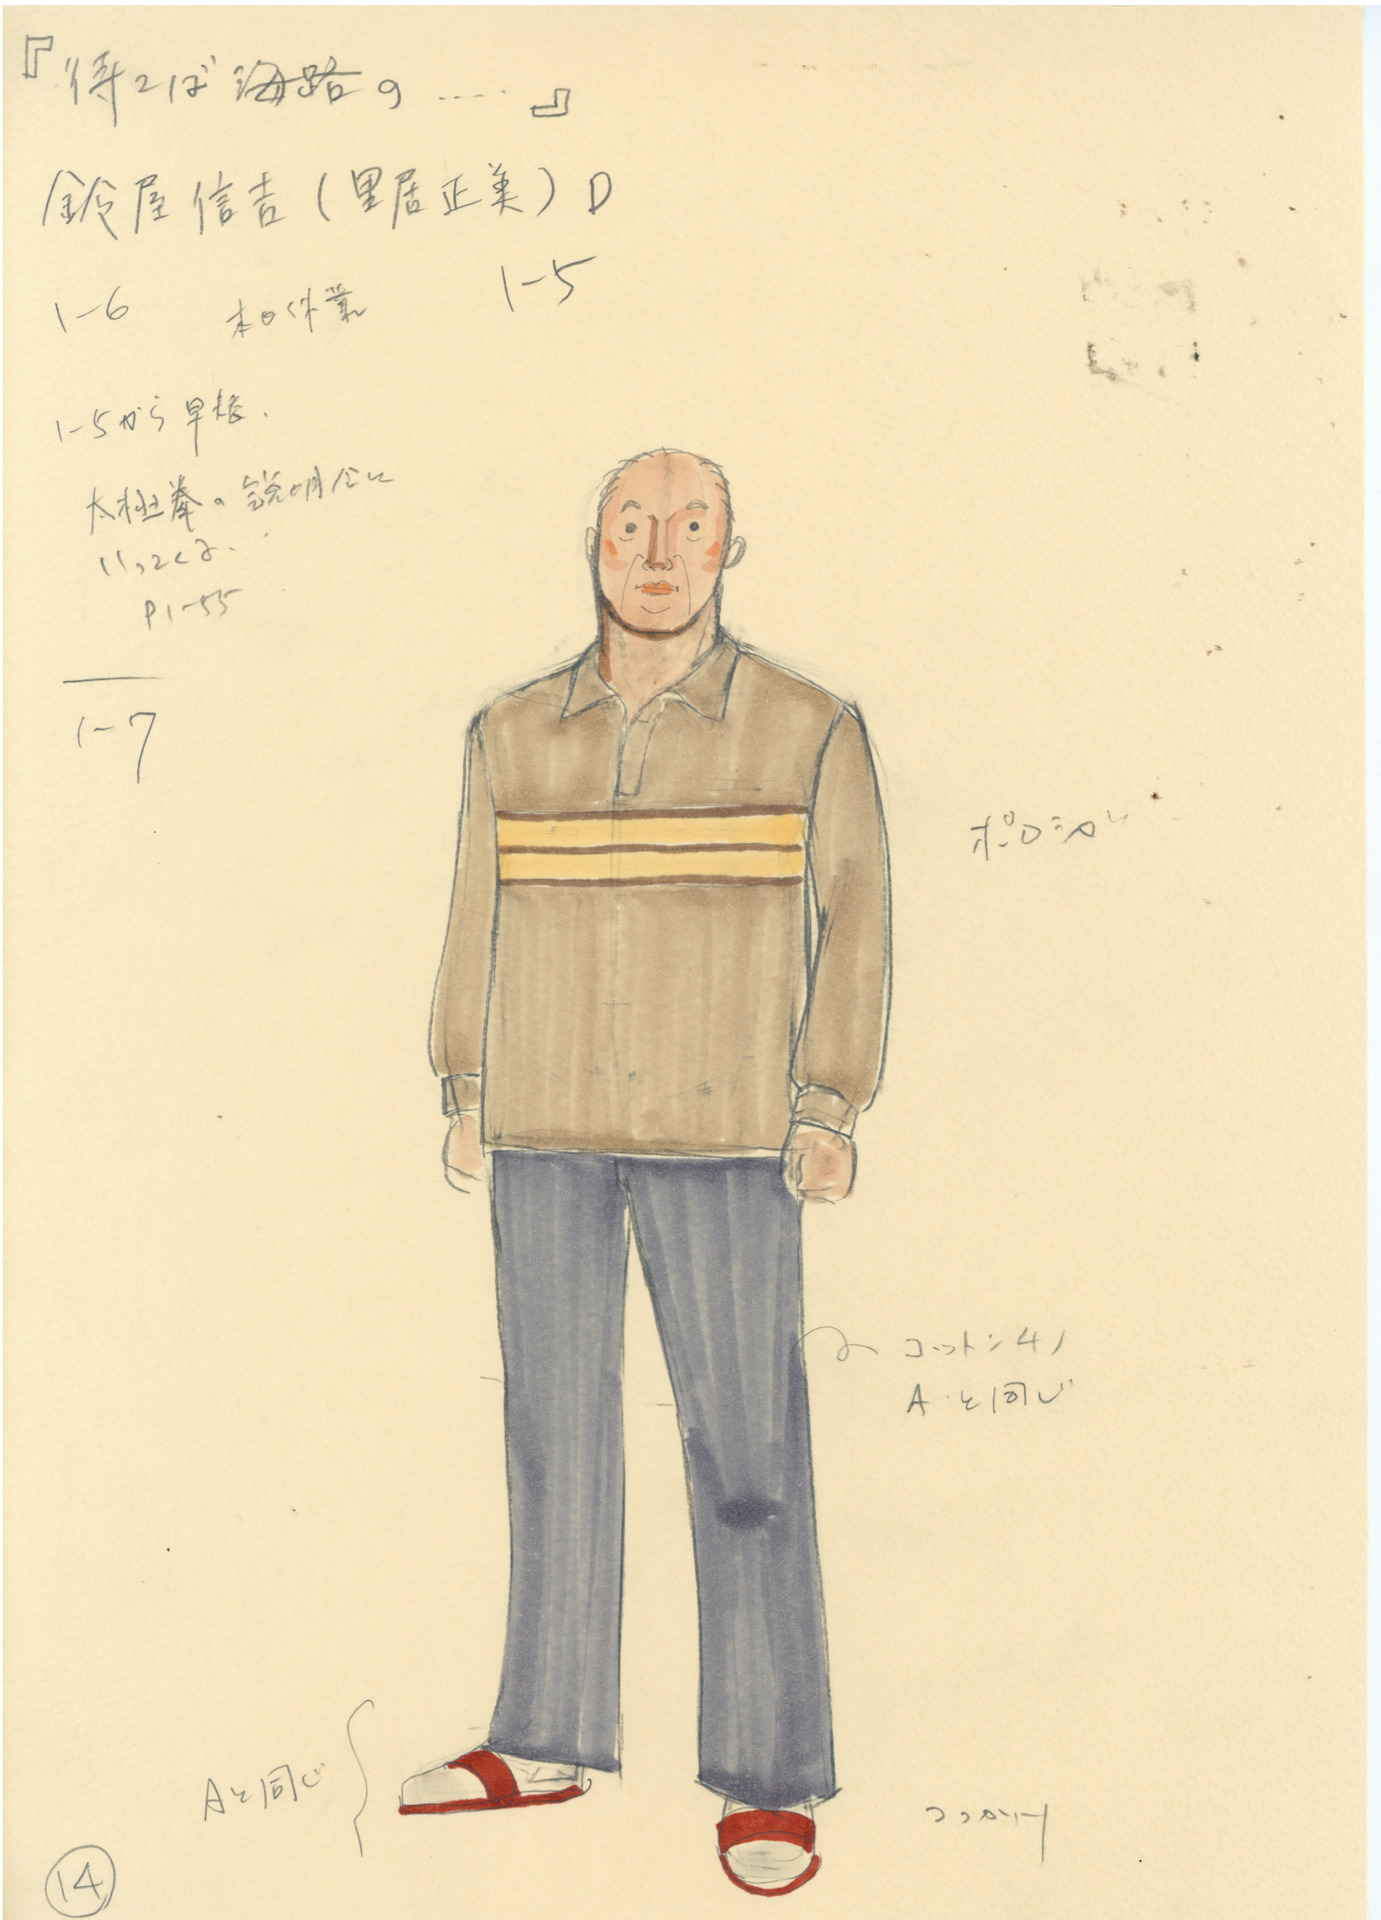 『待てば海路の……』
鈴屋信吉(里居正美)D
1-5
1-6 本日休業
1-5から早替.
太極拳の説明会に
いってくる..
P1-55
1-7
ポロシャツ
コットンチノ
Aと同じ
Aと同じ
つっかけ
14